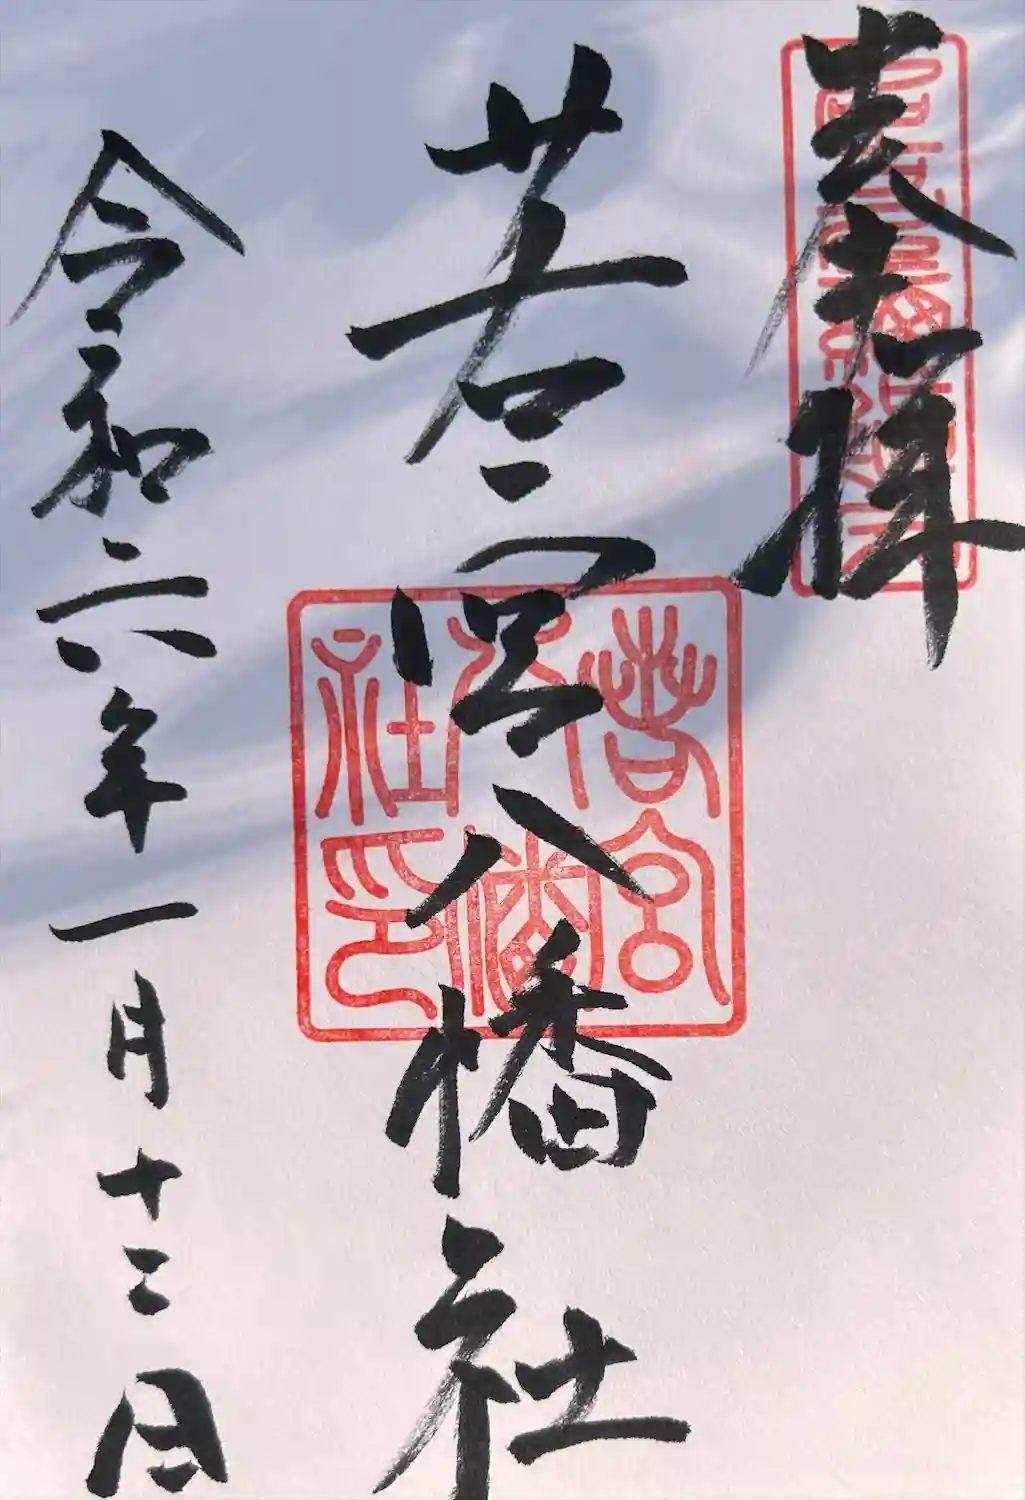 奉拝
若宮八幡社
若宮八幡社印
令和六年一月十二日